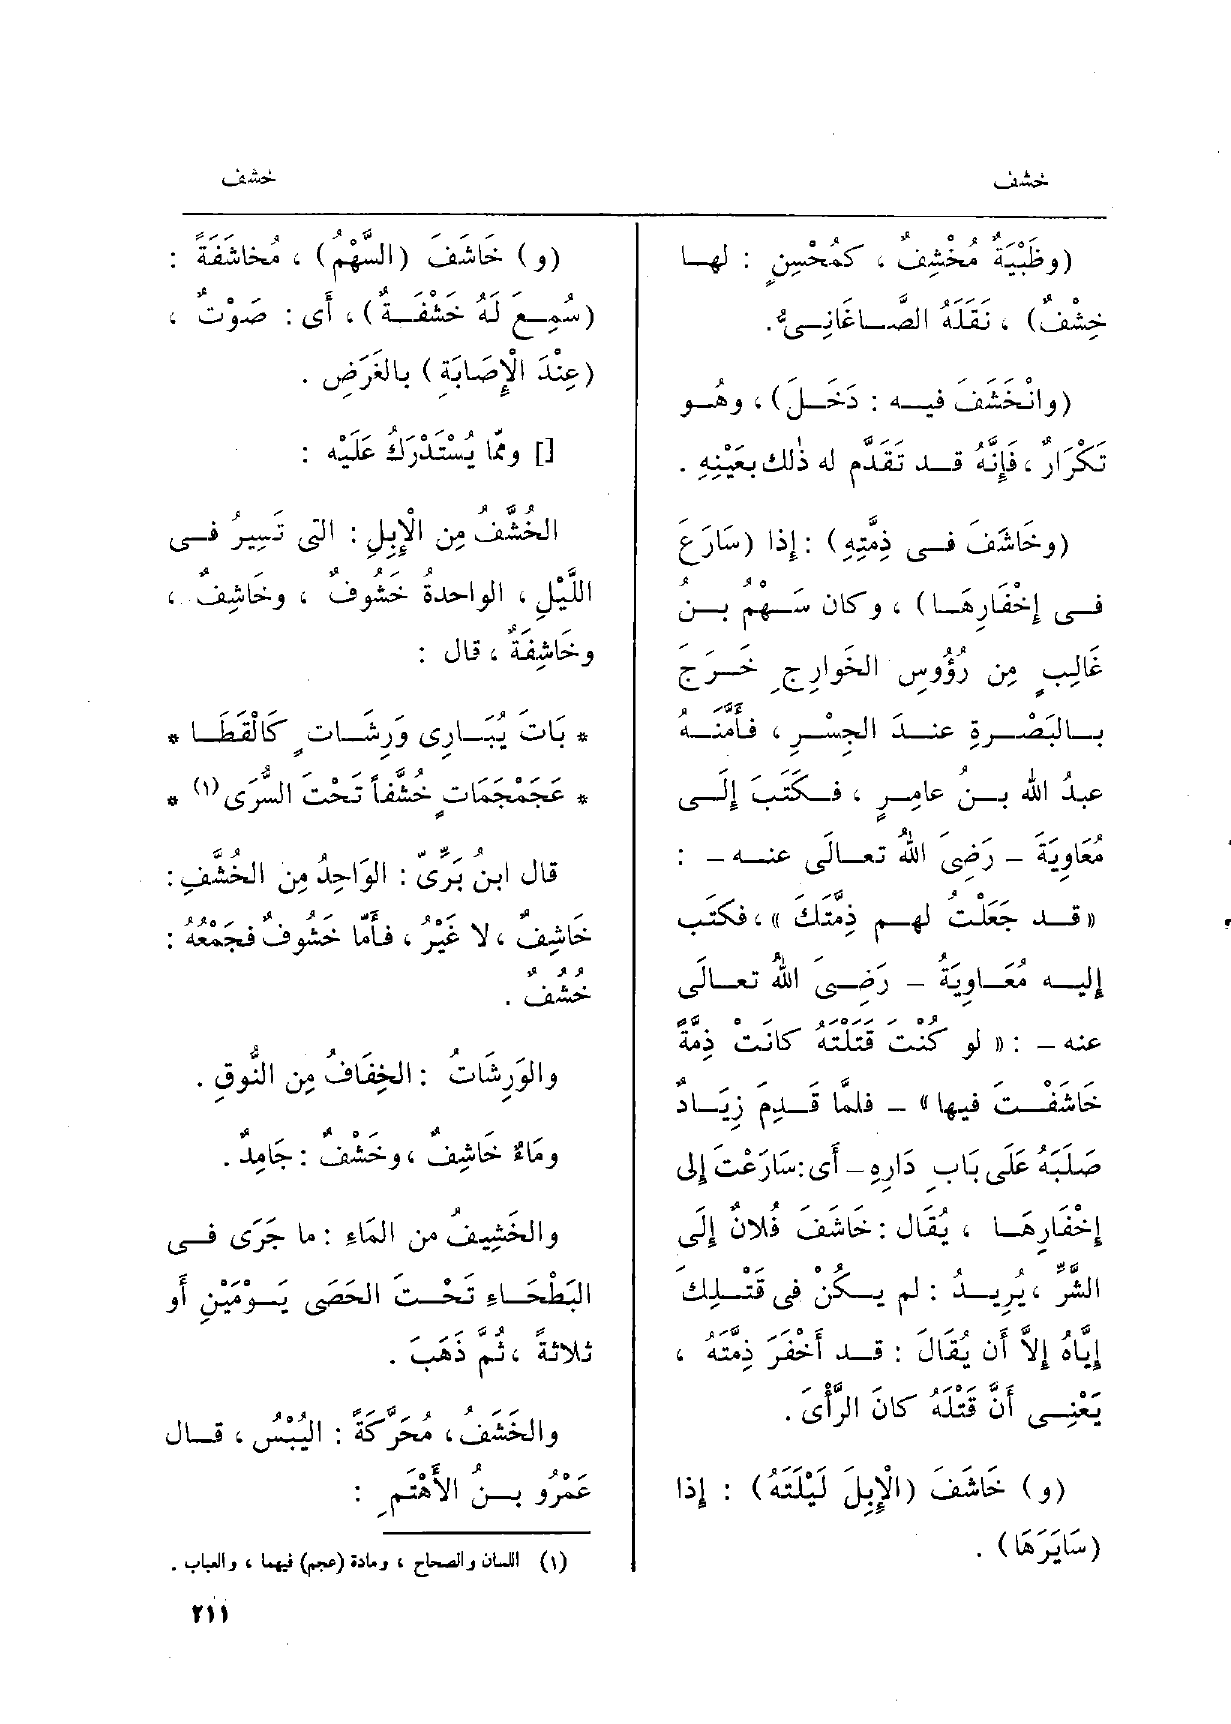 خشف
خشف
(وظَبْيَةٌ مُخْشِفٌ ، كمُحْسِنٍ : لهــا
خِشْفٌ) ، نَقَلَهُ الصَّــاغَانِــىُّ.
(وانْخَشَفَ فيــه : دَخَــلَ) ، وهُــو
تَكْرَارٌ ، فَإِنَّهُ قــد تَقَدَّم له ذٰلك بعَيْنِهِ .
(وخَاشَفَ فــى ذِمَّتِهِ) : إذا (سَارَعَ
فــى إِخْفَارِهَــا) ، وكان سَــهْمُ بــن
غَالِبٍ مِن رُؤُوسِ الخَوارِجِ خَــرَجَ
بــالبَصْــرةِ عنــدَ الجِسْــرِ ، فــأَمَّنَــهُ
عبدُ الله بــنُ عامِــرٍ ، فــكَتَبَ إِلَــى
مُعَاوِيَةَ – رَضِىَ اللهُ تعــالَى عنــه – :
« قــد جَعَلْتُ لهــم ذِمَّتَكَ » ، فكَتَب
إليــه مُعَــاوِيَةُ – رَضِــىَ اللهُ تعــالَى
عنه – : « لو كُنْتَ قَتَلْتَهُ كانَتْ ذِمَّةً
خَاشَفْــتَ فيها » – فلمَّا قَــدِمَ زِيَــادٌ
صَلَبَهُ عَلَى بَابِ دَارِهِ – أى : سَارَعْتَ إلى
إِخْفَارِهَــا ، يُقَال : خَاشَفَ فُلانٌ إِلَى
الشَّرِّ ، يُرِيــدُ : لم يــكُنْ فى قَتْــلِكَ
إِيَّاهُ إلاَّ أن يُقَالَ : قــد أَخْفَرَ ذِمَّتَهُ ،
يَعْنِــى أَنَّ قَتْلَهُ كانَ الرَّأْىَ .
(و) خَاشَفَ (الْإِبِلَ لَيْلَتَهُ) : إذا
(سَايَرَهَا) .
(و) خَاشَفَ (السَّهْمُ) ، مُخاشَفَةً :
(سُمِــعَ لَهُ خَشْفَــةٌ) ، أى : صَوْتٌ ،
(عِنْدَ الْإِصَابَةِ) بالغَرَضِ .
[] وممّا يُسْتَدْرَكُ عَلَيْه :
الخُشَّفُ مِن الْإِبِلِ : التى تَسِيرُ فــى
اللَّيْلِ ، الواحدةُ خَشُوفٌ ، وخَاشِفٌ ،
وخَاشِفَةٌ ، قال :
* بَاتَ يُبَــارِى وَرِشَــات ٍ كَالْقَطَــا *
* عَجَمْجَمَاتٍ خُشَّفاً تَحْتَ السُّرَى (١) *
قال ابنُ بَرِّىّ : الوَاحِدُ مِن الخُشَّفِ :
خَاشِفٌ ، لا غَيْرُ ، فأَمّا خَشُوفٌ فجَمْعُهُ :
خُشُفٌ .
والوَرِشَاتُ : الخِفَافُ مِن النُّوقِ .
ومَاءٌ خَاشِفٌ ، وخَشْفٌ : جَامِدٌ .
والخَشِيفُ من المَاءِ : ما جَرَى فــى
البَطْحَــاءِ تَحْــتَ الحَصَى يَــوْمَيْنِ أو
ثلاثةً ، ثُمَّ ذَهَبَ .
والخَشَفُ ، مُحَرَّكَةً : اليُبْسُ ، قــال
عَمْرُو بــنُ الأَهْتَمِ :
(١) اللسان والصحاح ، ومادة (عجم) فيهما ، والعباب .
٢١١